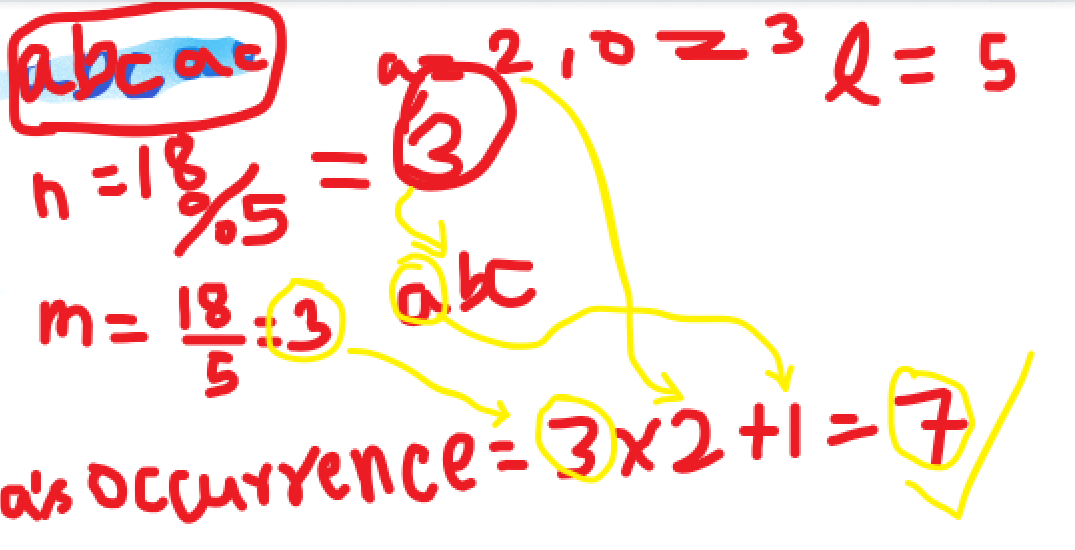 abcac a=2, 0=3 l=5
n=18%5 = 3
abc
m= 18/5 =3
a's occurrence= 3x2+1=7